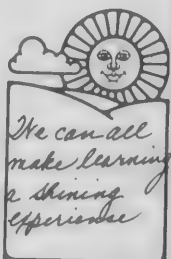 We can all
make learning
a shining
experience